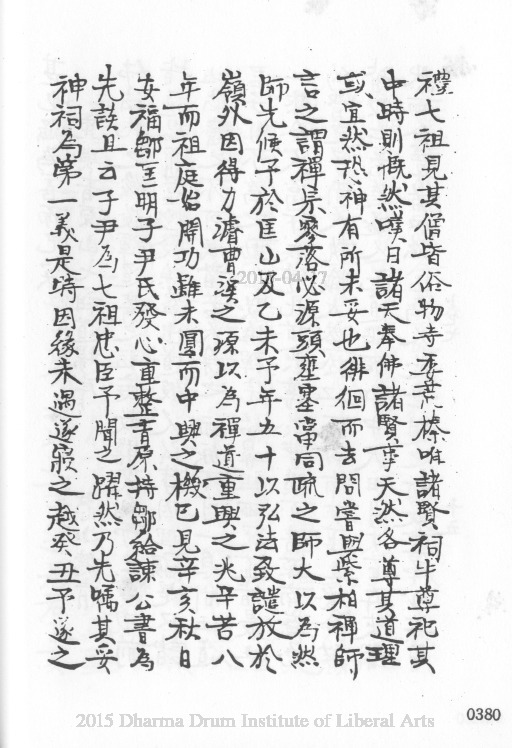 禮七祖見其僧皆俗物寺委荒榛唯諸賢祠牛尊祀其
中時則慨然嘆曰諸天奉佛諸賢宰天然各尊其道理
或宜然恐神有所未妥也徘徊而去間嘗與紫柏禪師
言之謂禪宗寥落必源頭壅塞當同疏之師大以為然
師先候予於匡山及乙未予年五十以弘法致譴放於
嶺外因得力濬曹溪之源以為禪道重興之兆辛苦八
年而祖庭始開功雖未圓而中興之機已見辛亥秋日
安福鄒匡明子尹氏發心重整青原持鄒給諫公書為
先談且云子尹為七祖忠臣予聞之躍然乃先囑其妥
神祠為第一義是時因緣未遇遂寢之越癸丑予遂之
0380
2015-04-27
2015 Dharma Drum Institute of Liberal Arts